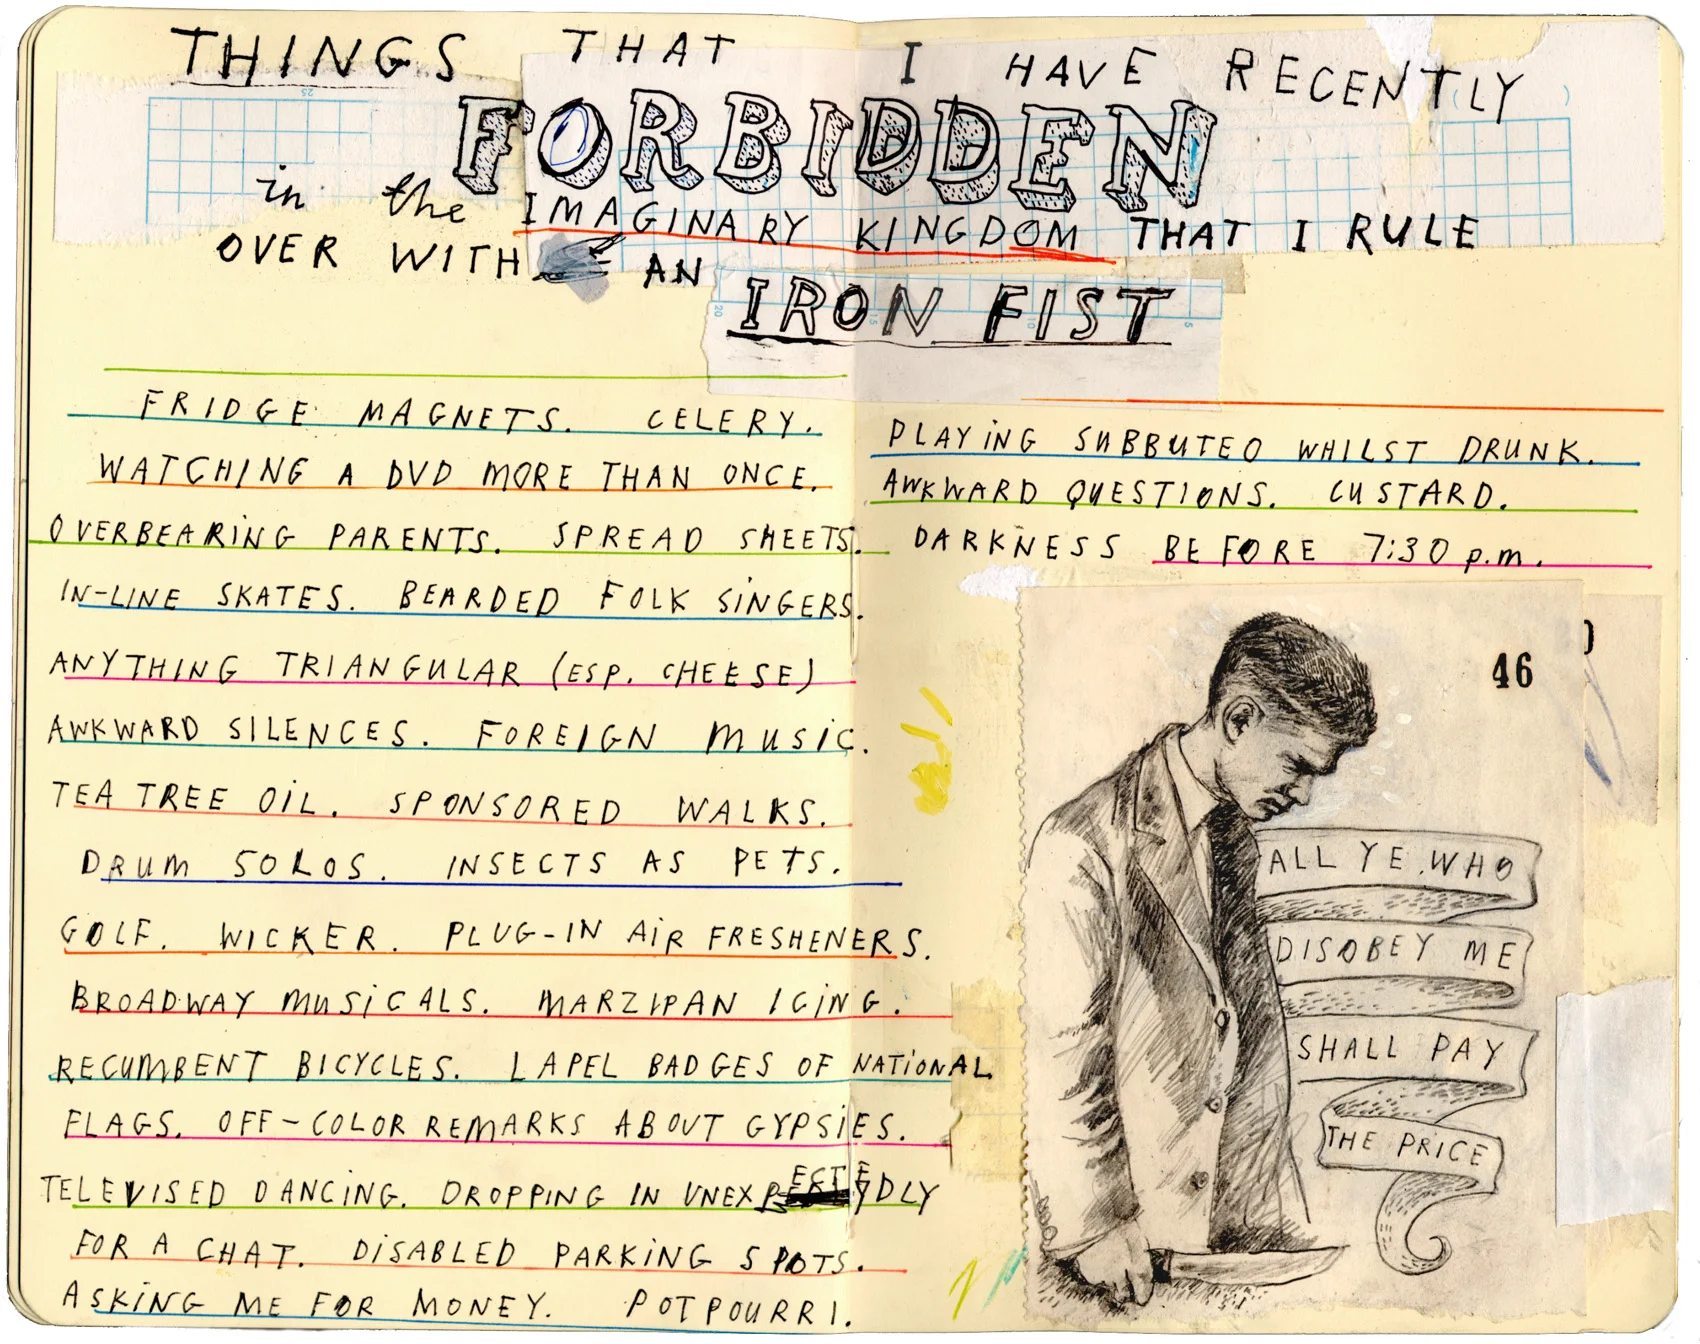 THINGS THAT I HAVE RECENTLY
FORBIDDEN
in the IMAGINARY KINGDOM THAT I RULE
OVER WITH AN
IRON FIST
FRIDGE MAGNETS. CELERY.
WATCHING A DVD MORE THAN ONCE.
OVERBEARING PARENTS. SPREAD SHEETS.
IN-LINE SKATES. BEARDED FOLK SINGERS.
ANYTHING TRIANGULAR (ESP. CHEESE)
AWKWARD SILENCES. FOREIGN MUSIC.
TEA TREE OIL. SPONSORED WALKS.
DRUM SOLOS. INSECTS AS PETS.
GOLF. WICKER. PLUG-IN AIR FRESHENERS.
BROADWAY MUSICALS. MARZIPAN ICING.
RECUMBENT BICYCLES. LAPEL BADGES OF NATIONAL
FLAGS. OFF-COLOR REMARKS ABOUT GYPSIES.
TELEVISED DANCING. DROPPING IN UNEXPECTEDLY
FOR A CHAT. DISABLED PARKING SPOTS.
ASKING ME FOR MONEY. POTPOURRI.
PLAYING SUBBUTEO WHILST DRUNK.
AWKWARD QUESTIONS. CUSTARD.
DARKNESS BEFORE 7:30 p.m.
46
ALL YE WHO
DISOBEY ME
SHALL PAY
THE PRICE